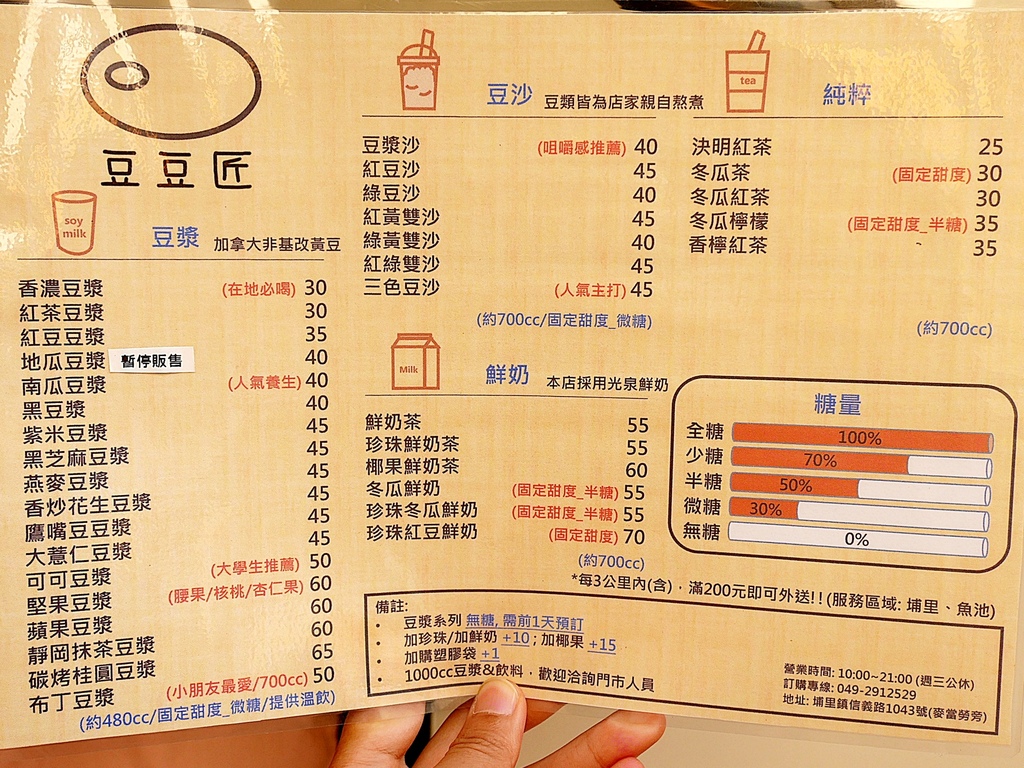 豆豆匠
soy milk
豆漿 加拿大非基改黃豆
香濃豆漿 (在地必喝) 30
紅茶豆漿 30
紅豆豆漿 35
地瓜豆漿 暫停販售 40
南瓜豆漿 (人氣養生) 40
黑豆漿 40
紫米豆漿 45
黑芝麻豆漿 45
燕麥豆漿 45
香炒花生豆漿 45
鷹嘴豆豆漿 45
大薏仁豆漿 45
可可豆漿 (大學生推薦) 50
堅果豆漿 (腰果/核桃/杏仁果) 60
蘋果豆漿 60
靜岡抹茶豆漿 60
碳烤桂圓豆漿 65
布丁豆漿 (小朋友最愛/700cc) 50
(約480cc/固定甜度_微糖/提供溫飲)
豆沙 豆類皆為店家親自熬煮
豆漿沙 (咀嚼感推薦) 40
紅豆沙 45
綠豆沙 40
紅黃雙沙 45
綠黃雙沙 40
紅綠雙沙 45
三色豆沙 (人氣主打) 45
(約700cc/固定甜度_微糖)
Milk
鮮奶 本店採用光泉鮮奶
鮮奶茶 55
珍珠鮮奶茶 55
椰果鮮奶茶 60
冬瓜鮮奶 (固定甜度_半糖) 55
珍珠冬瓜鮮奶 (固定甜度_半糖) 55
珍珠紅豆鮮奶 (固定甜度) 70
(約700cc)
tea
純粹
決明紅茶 25
冬瓜茶 (固定甜度) 30
冬瓜紅茶 30
冬瓜檸檬 (固定甜度_半糖) 35
香檸紅茶 35
(約700cc)
糖量
全糖 100%
少糖 70%
半糖 50%
微糖 30%
無糖 0%
*每3公里內(含)，滿200元即可外送!!(服務區域: 埔里、魚池)
備註:
• 豆漿系列 無糖, 需前1天預訂
• 加珍珠/加鮮奶 +10 ; 加椰果 +15
• 加購塑膠袋 +1
• 1000cc豆漿&飲料，歡迎洽詢門市人員
營業時間: 10:00~21:00 (週三公休)
訂購專線: 049-2912529
地址: 埔里鎮信義路1043號(麥當勞旁)